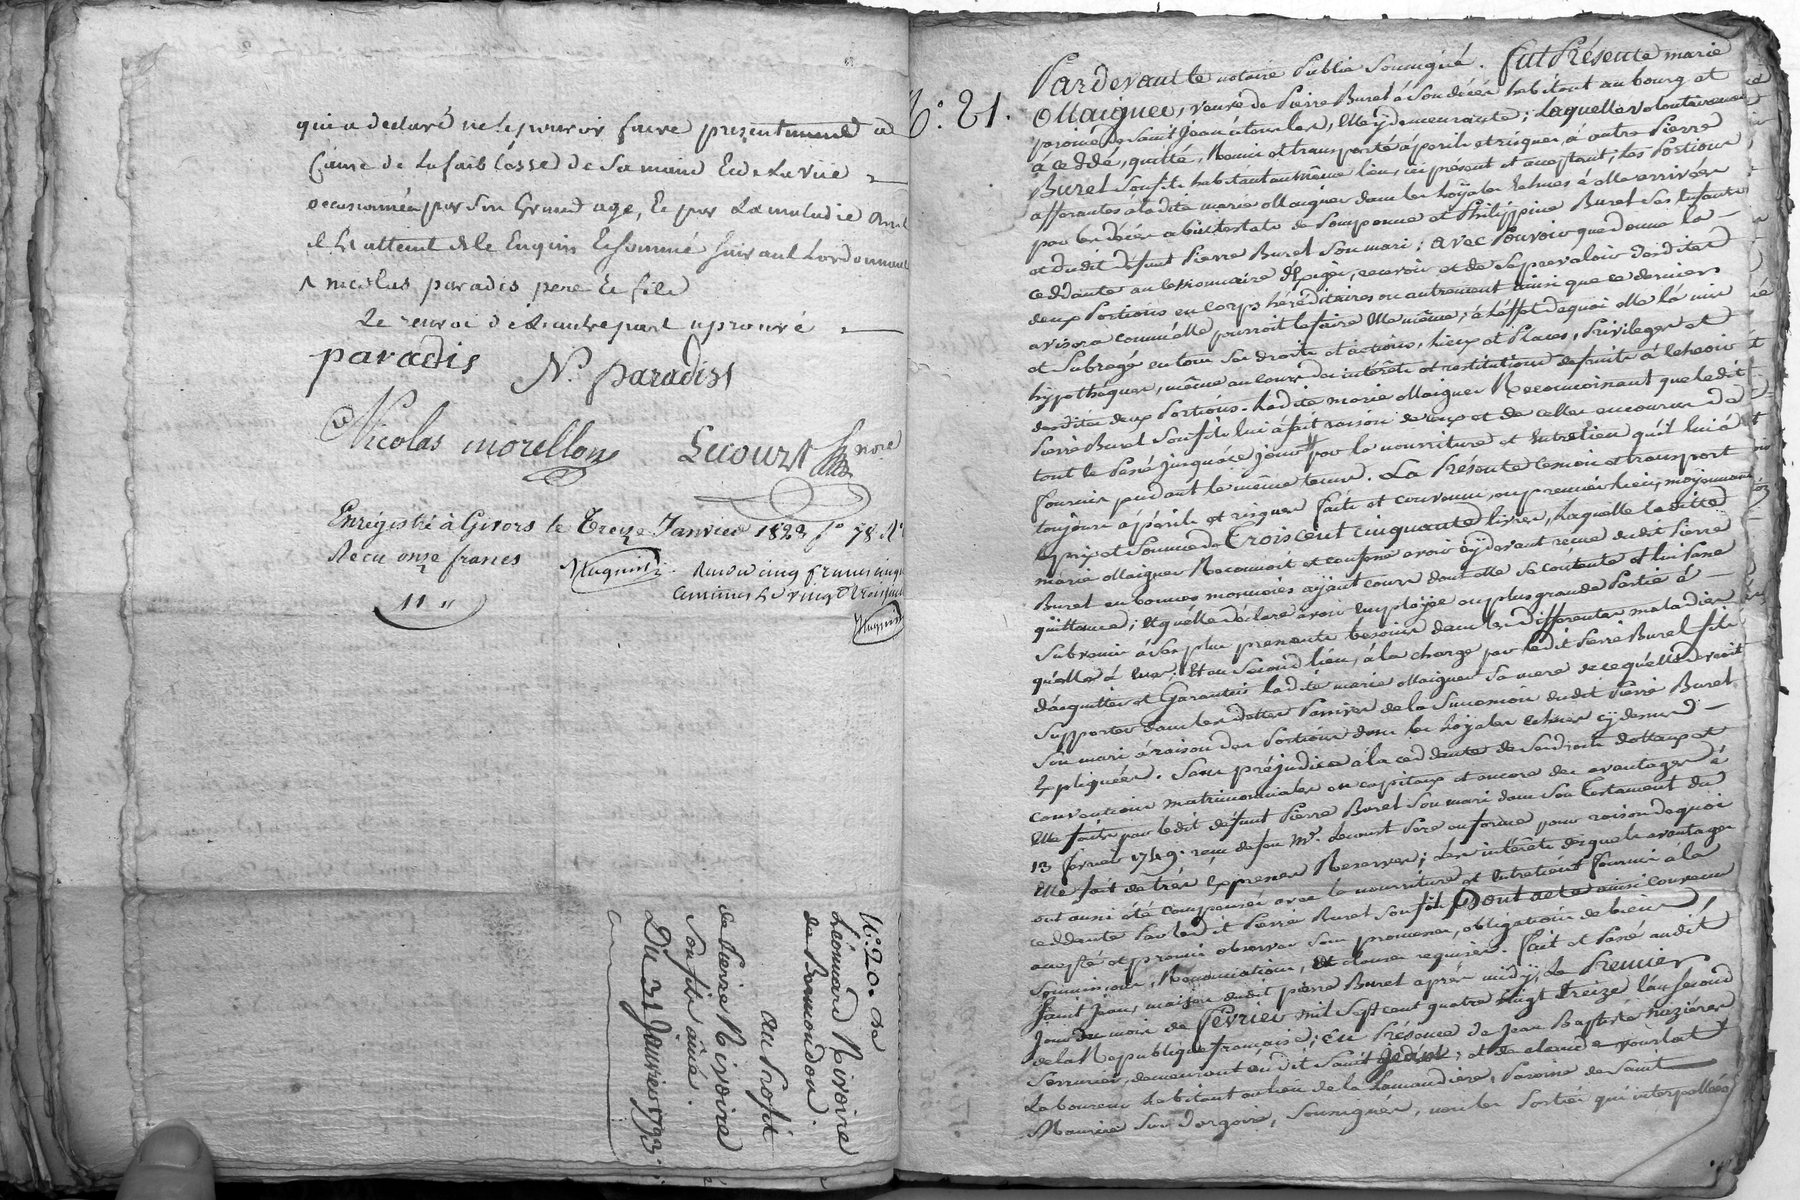 qui a declaré ne le pouvoir faire presentement a
Cause de la faiblesse de sa main Et de la vüe
occasionnée par son Grand age, Et par la maladie dont
il Est atteint de ce Enquis Et sommé suivant L'ordonnance
nicolas paradis pere Et fils
Le renvoi de L'autre part aprouvé
paradis N. paradist
Nicolas morellon Lecourt nore
Enregistré à Givors le Treize Janvier 1823 fo 78 Ro
Recu onze francs
11 "
Recu cinq francs cinq
centimes Le vingt trois
N°. 20. de
Léonnard Rivoire
de Bramondon.
au Profit
de Pierre Rivoire
Son fils ainé.
Du 31 Janvier 1793.
N°. 21.
Pardevant le notaire Public Soussigné. Fut Présente marie
Maignee, veuve de Pierre Burel à Son décès habitant au bourg et
paroisse de Saint Jean à toulas, Elle y demeurante; Laquelle volontairement
à ceddé, quitté, Remis et transporté à péril et risques, à autre Pierre
Burel Son fils habitant au même lieu, ici présent et acceptant; les Portions
afferantes à ladite marie Maignee dans les loÿales Echues à elle arrivées
par les décès ab intestats de Pomponne et Philippine Burel Ses Enfants
et dudit défunt Pierre Burel Son mari; avec Pouvoir que donne la
ceddante au cessionnaire d'Exiger, recevoir et de Se prevaloir desdites
deux Portions en corps héréditaires ou autrement ainsi que ce dernier
avisera comme elle pourroit le faire Elle même; à l'effet de quoi elle l'a mis
et Subrogé en tous Ses droits et actions, Lieux et Places, Privileges et
hypothèques, même au cours des intérêts et restitutions de fruits à l'echoir
desdites deux Portions. Ladite marie Maignee Reconnoissant que ledit
Pierre Burel Son fils lui a fait raison de ceux et de celles encourus de
tout le Passé jusqu'à ce jour par la nourriture et Entretien qu'il lui a
fournie pendant le même tems. La Présente Cession et transport
toujours à péril et risques Faite et convenue, en premier lieu, moyennant
le prix et Somme de Trois cent cinquante livres, Laquelle ladite
marie Maignee Reconnoit et confesse avoir cÿ devant reçue dudit Pierre
Burel en bonnes monnoies aÿant cours dont elle Se contente et lui Passe
quittance; Et qu'elle déclare avoir Employée en plus grande Partie à
Subvenir à Ses plus pressants besoins dans les differentes maladies
qu'elle à Eues. Et au Second lieu, à la charge par ledit Pierre Burel fils
d'acquitter et Garantir ladite marie Maignee Sa mere de ce qu'elle devroit
Supporter dans les dettes Passives de la Succession dudit Pierre Burel
Son mari à raison des Portions dans les loÿales echues cÿ dessus
Expliquées. Sans préjudice à la ceddante de Ses droits dottaux et
conventions matrimoniales en capitaux et encore des avantages à
Elle faits par ledit défunt Pierre Burel Son mari dans Son Testament du
13 fevrier 1749. reçu de feu Me. Lecourt Pere en forme pour raison de quoi
Elle fait de très Expresses Reserves; Les intérêts desquels avantages
ont aussi été compensés avec la nourriture et Entretient fourni à la
ceddante Par ledit Pierre Burel Son fils. Dont acte ainsi convenu
accepté et promis observer Sous promesses, obligations de biens,
Soumissions, Renonciations, Et clauses requises. Fait et Passé audit
Saint Jean, maison dudit pierre Burel après midÿ, Le Premier
Jour du mois de Février mil Sept cent quatre vingt treize l'an Second
de la Republique française; En Présence de Jean Baptiste Nizière
Serrurier, demeurant audit Saint Jean; et de claude vourlat
Laboureur habitant au lieu de la Lamandière, Paroisse de Saint
Maurice Sur dargoire, Soussignés, non les Parties qui interpellées